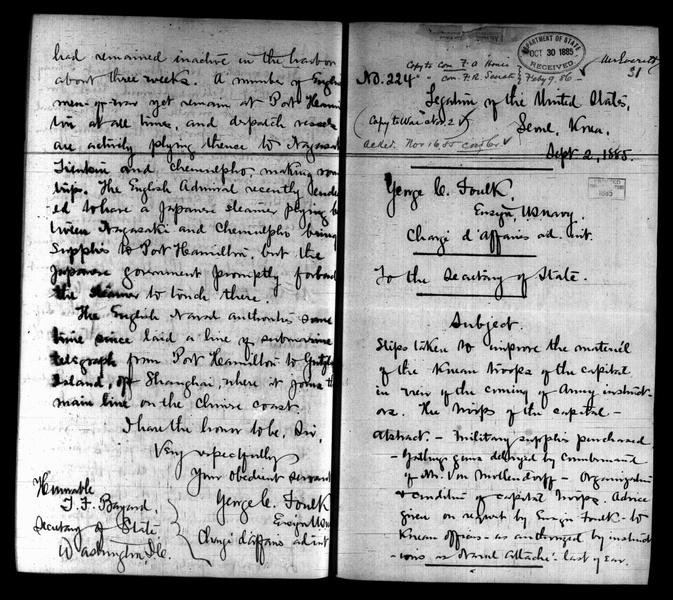 had remained inactive in the harbor
about three weeks. A number of English
men-of-war yet remain at Port Hamil
ton at all times, and dispatch vessels
are actively plying thence to Nagasaki
Tientsin and Chemulpho, making round
trips. The English Admiral recently
to have a Japanese steamer plying be
tween Nagasaki and Chemulpho bring
supplies to Port Hamilton, but the
Japanese government promptly forbade
the steamer to touch there.
The English Naval authorities some
time since laid a line of submarine
telegraph from Port Hamilton to
Island, off Shanghai, where it joins the
main line on the Chinese coast.
I have the honor to be, Sir,
Very respectfully
Your obedient servant
George C. Foulk
Ensign USN
Chargé d'affaires ad int
Honorable
T. F. Bayard,
Secretary of State
Washington, D.C.
DEPARTMENT OF STATE
OCT 30 1885
RECEIVED
Copy to Com. F. A. House
" Com. F. R. Senate Feby 9. 86
31
No. 224
Legation of the United States,
(Copy to War Nov. 2)
Seoul, Korea.
Ackd. Nov 16 85
Sept 2, 1885.
1885
George C. Foulk,
Ensign, US Navy.
Chargé d'affaires ad. int.
To the Secretary of State.
Subject.
Steps taken to improve the materiél
of the Korean troops of the capital
in view of the coming of Army instruct-
ors. The troops of the capital -
Abstract. - Military supplies purchased
- Gatlings guns delayed by command
of Mr. Von Mollendorff - Organization
& condition of capital troops. Advice
given on request by Ensign Foulk - to
Korean officers - as authorized by instruct
- ions as Naval Attaché - last of